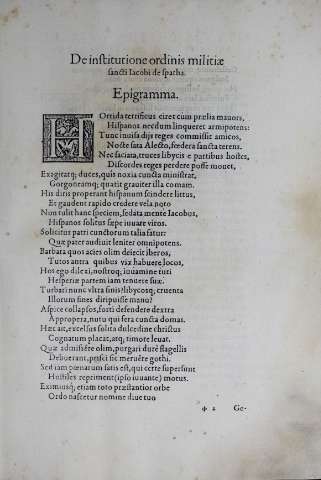 De institutione ordinis militiæ
sancti Iacobi de spatha.
Epigramma.
HOrrida terrificus ciret cum prælia mauors,
Hispanos nec dum linqueret armipotens:
Tunc inuisa dijs reges commisit amicos,
Nocte sata Alecto, fœdera sancta terens.
Nec saciata, truces libycis e partibus hostes,
Discordes reges perdere posse mouet,
Exagitatq; duces, quis noxia cuncta ministrat,
Gorgoneamq; quatit grauiter illa comam.
His diris properant hispanum scindere littus,
Et gaudent rapido credere vela noto
Non tulit hanc speciem, sedata mente Iacobus,
Hispanos solitus sæpe iuuare viros.
Solicitus patri cunctorum talia fatur:
Quæ pater audiuit leniter omnipotens.
Barbara quos acies olim deiecit iberos,
Tutos antra quibus vix habuere locos,
Hos ego dilexi, nostroq; iuuamine tuti
Helperiæ partem iam tenuere suæ.
Turbati nunc vltra sinis? libycosq; cruenta
Illorum fines diripuisse manu?
Aspice collapsos, forti defendere dextra
Appropera, nutu qui fera cuncta domas.
Hæc ait, excelsus solita dulcedine christus
Cognatum placat, atq; timore leuat.
Quæ admisere olim, purgari duræ flagellis
Debuerant, prisci sic meruere gothi.
Sed iam pœnarum satis est, qui certe superfunt
Hostiles repriment (ipso iuuante) motus.
Eximiusq; etiam toto præstantior orbe
Ordo nascetur nomine diue tuo
✠ 2 Ge-